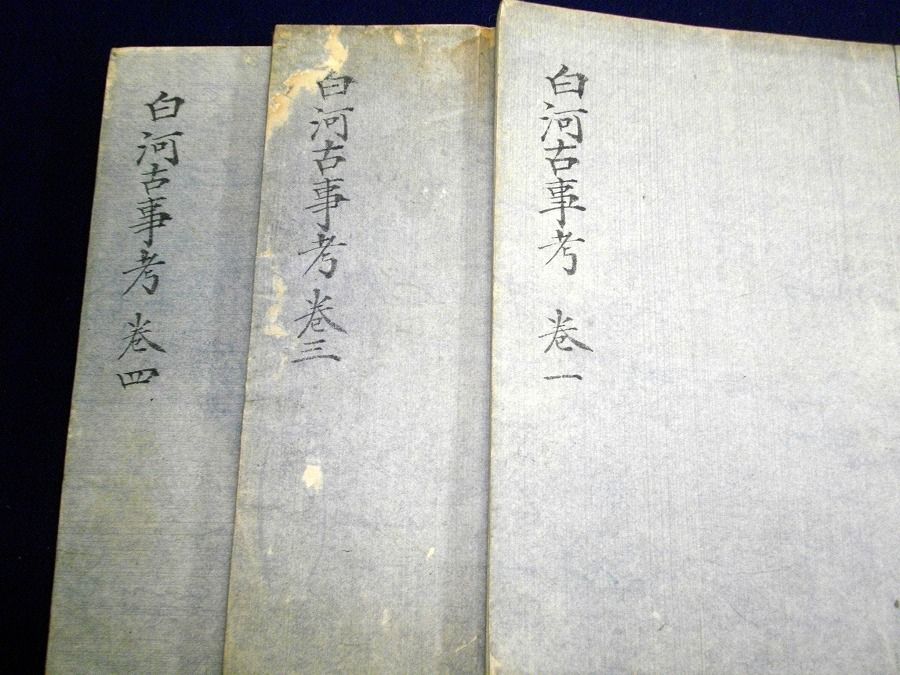 白河古事考 巻一
白河古事考 巻三
白河古事考 巻四